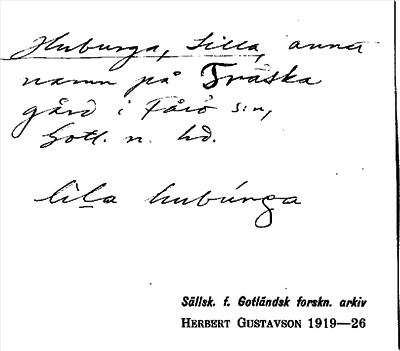 Huburga, Lilla, annat
namn på Träska
gård i Fårö s:n,
Gotl. n. hd.
lil̲a hubúrga
Sällsk. f. Gotländsk forskn. arkiv
HERBERT GUSTAVSON 1919—26